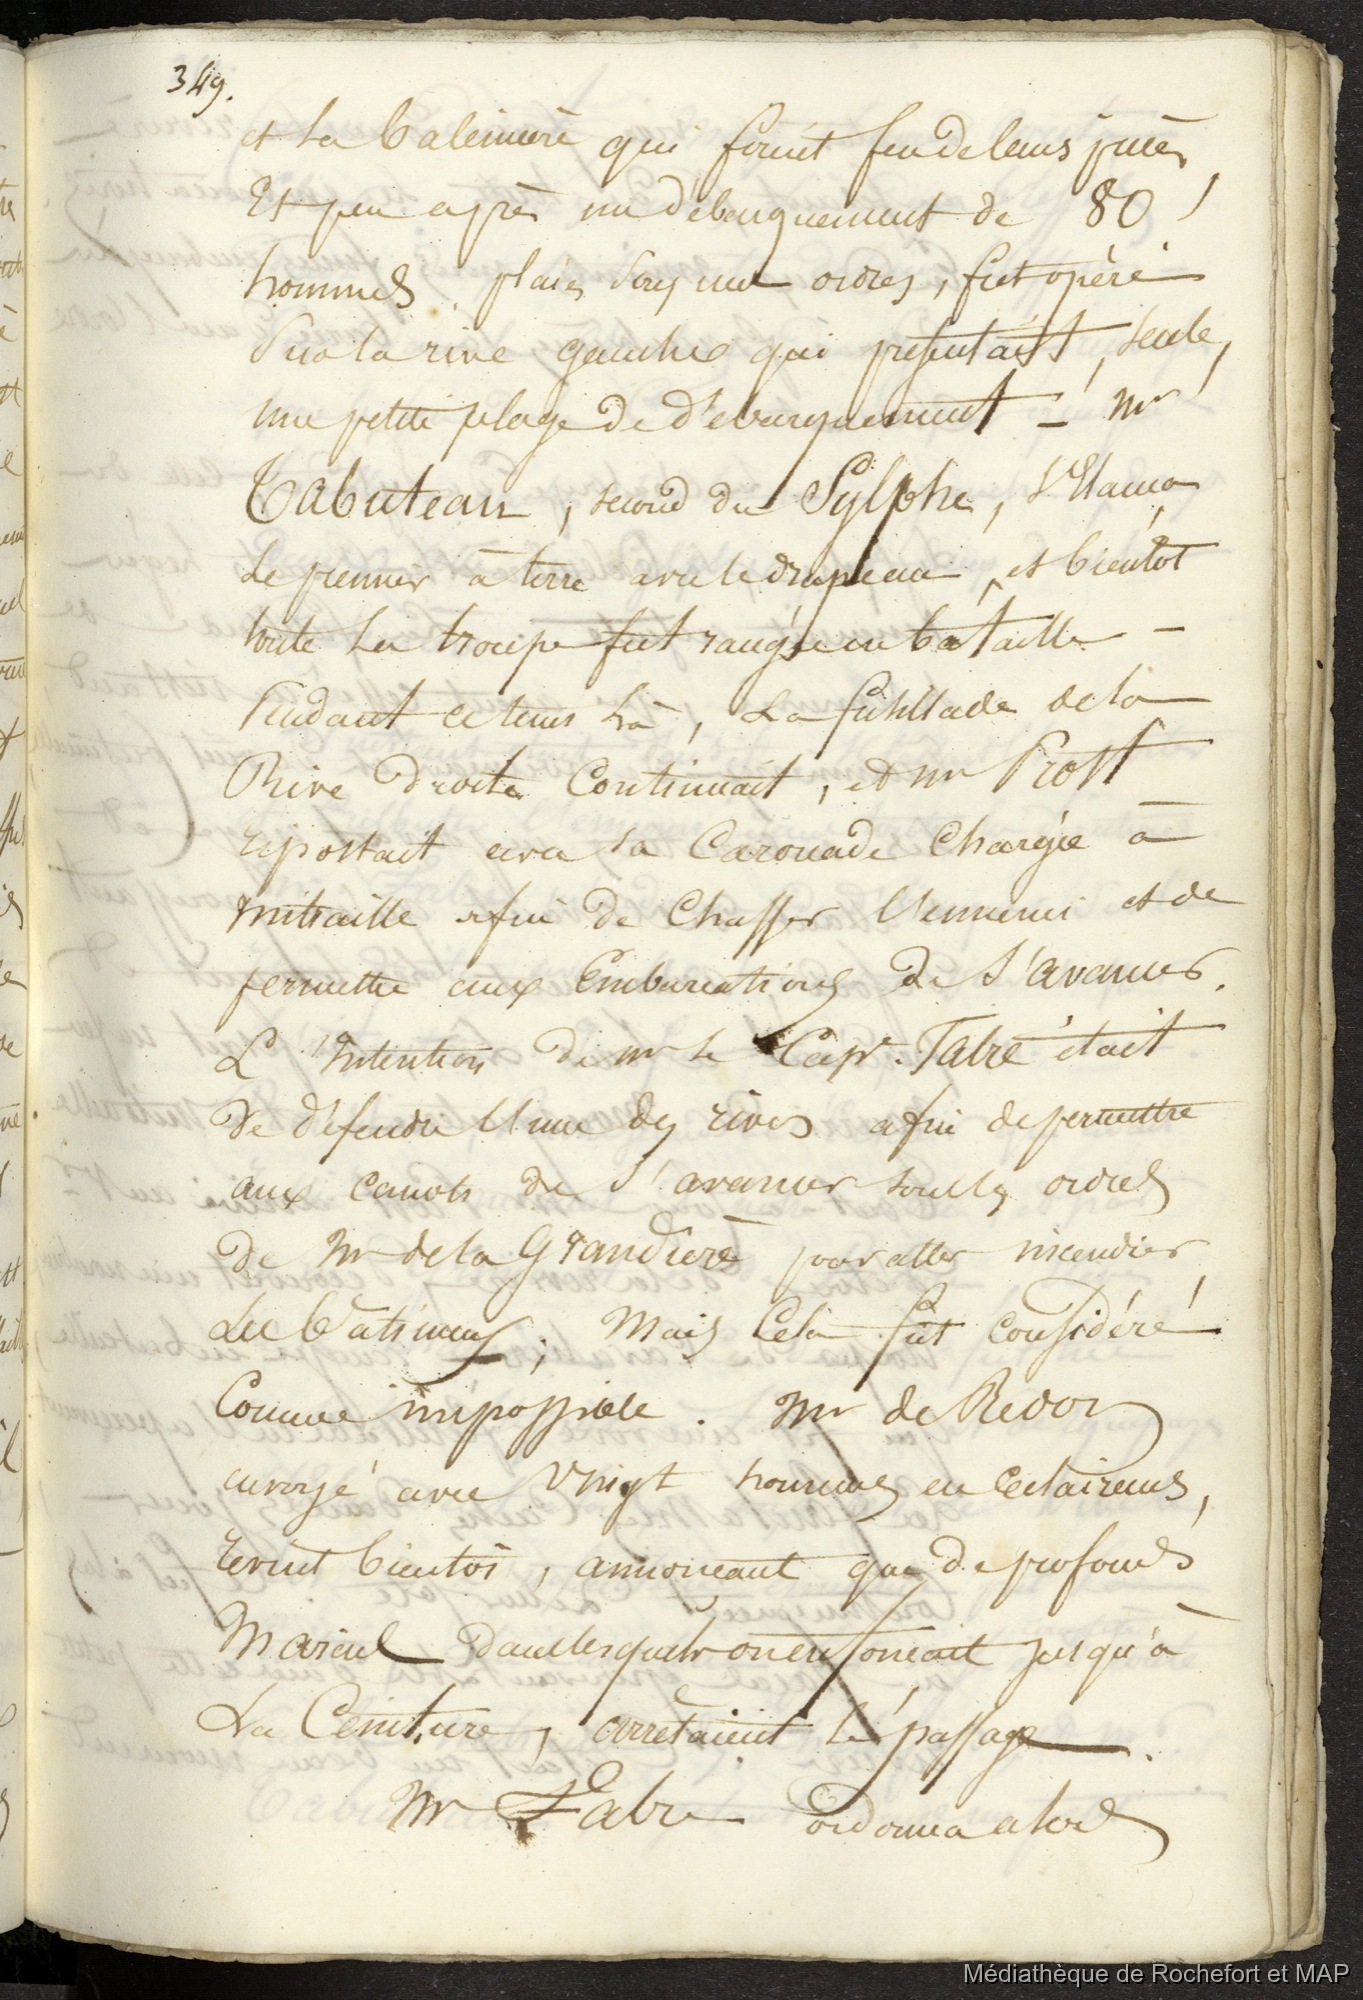 349.
et la baleinière qui firent feu de leurs pièces,
Et peu après un débarquement de 80
hommes, placés sous mes ordres, fut opéré
sur la rive gauche qui présentait, seule,
une petite plage de débarquement _ Mr
Tabuteau, second du Sylphe, s'Elança
le premier à terre avec le drapeau, et bientôt
toute la troupe fut rangée en bataille -
Pendant ce tems là, la fusillade de la
Rive droite Continuait, et mr Prost
ripostait avec sa Caronade Chargée à
mitraille afin de Chasser l'ennemi et de
permettre aux Embarcations de s'avancer.
L'Intention de mr le Cape. Fabre était
de défendre l'une des rives afin de permettre
aux canots de s'avancer sous les ordres
de Mr de la Grandière pour aller incendier
les bâtimens; Mais Cela fut considéré
Comme impossible. Mr de Redon
envoyé avec Vingt hommes en Eclaireurs,
revint bientôt, annoncant que de profonds
Marais dans lesquels on enfoncait jusqu'à
La Ceinture, arrêtaient le passage.
Mr Fabre ordonna alors
Médiathèque de Rochefort et MAP